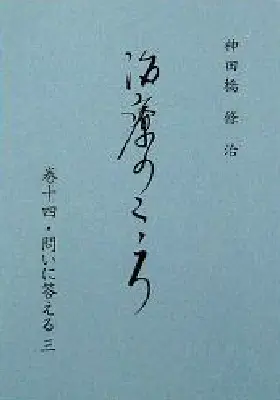 神田橋 條治
治療のこゝろ
巻十四・問いに答える 三